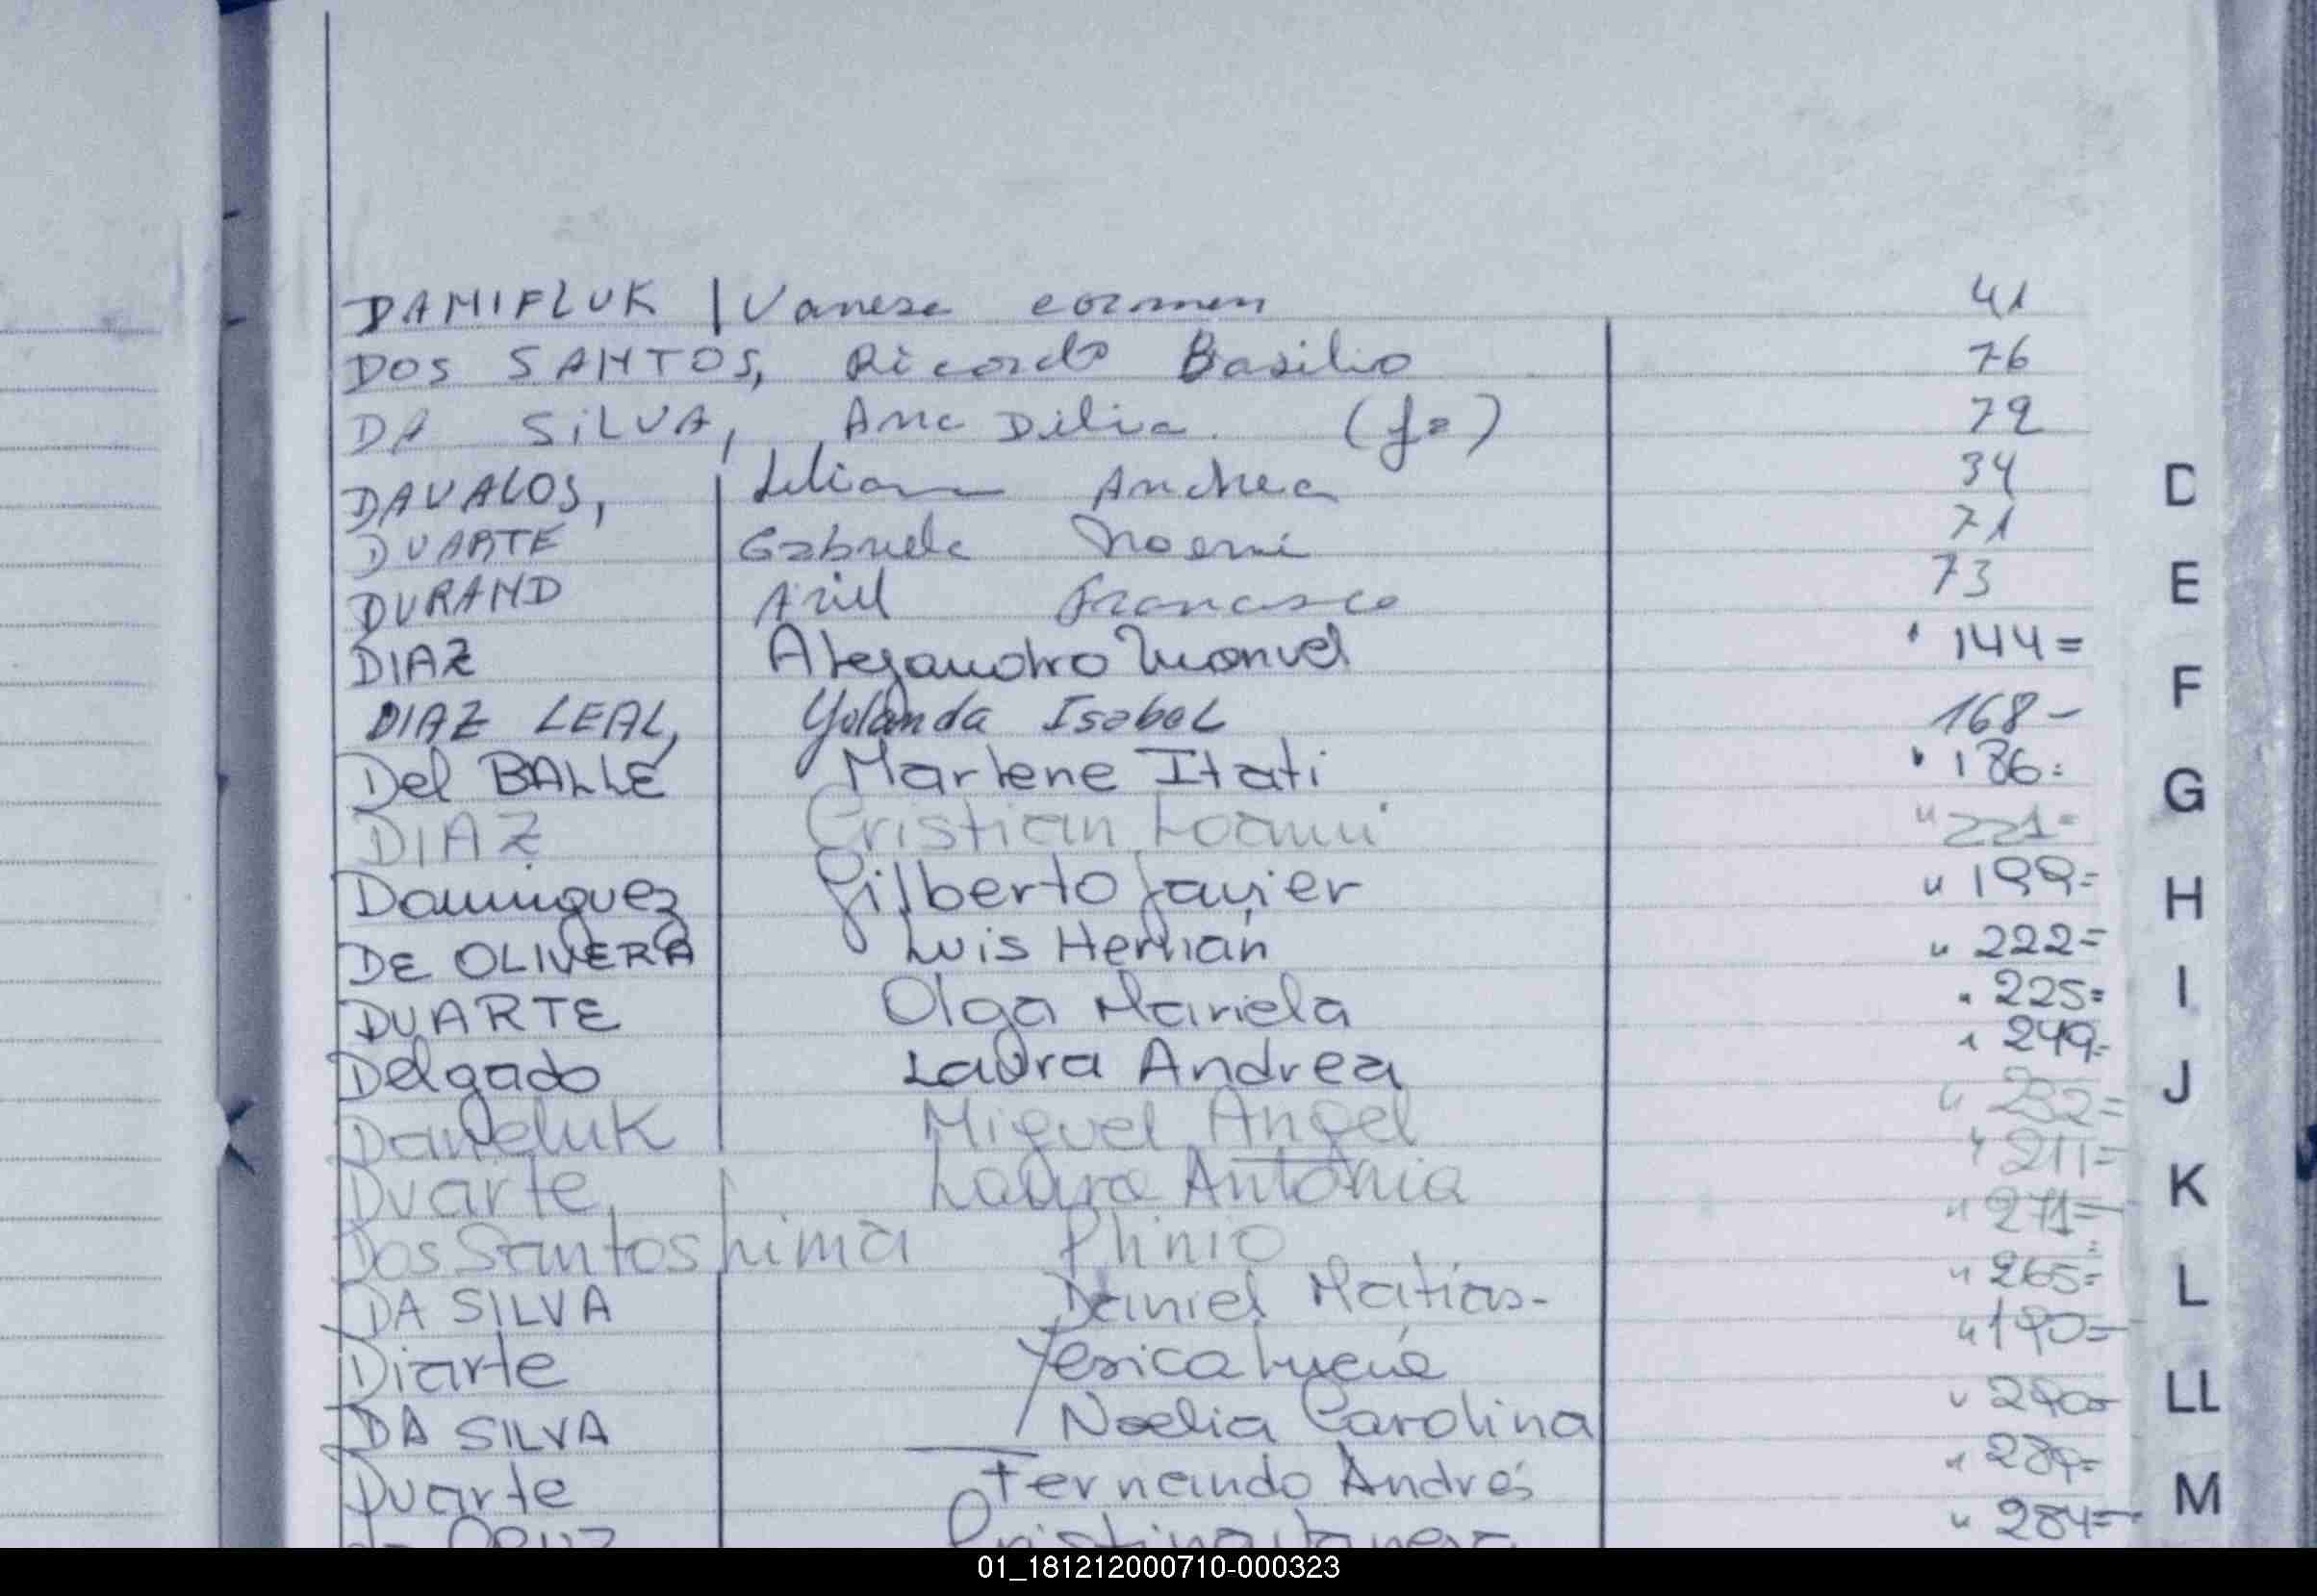 DAMIFLUK | Vanesa carmen 41
DOS SANTOS, Ricardo Basilio 76
DA SiLVA, Ana Dilia. (fa) 72
DAVALOS, Liliana Andrea 34
DUARTE Gabriela Noemi 71
DURAND Ariel Francisco 73
DIAZ Alejandro Manuel " 144=
DIAZ LEAL, Yolanda Isabel 168-
Del BALLE Marlene Itati " 186=
DIAZ Cristian " 221=
Dominguez Gilberto Javier " 199=
DE OLIVERA Luis Hernán " 222=
DUARTE Olga Mariela " 225=
Delgado Laura Andrea " 249=
Daneluk Miguel Angel " 232=
Duarte, Laura Antonia " 211=
Dos Santos Lima Plinio " 271=
DA SILVA Daniel Matías- " 265=
Diarte Yesica Lucía " 190=
DA SILVA Noelia Carolina "
Duarte Fernando Andrés "
CRUZ Cristina " 284=
D
E
F
G
H
I
J
K
L
LL
M
01_181212000710-000323